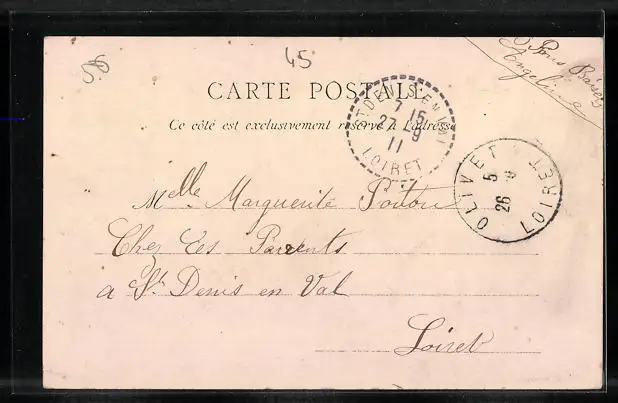 56
45
Bons Baisers
Angeline
CARTE POSTALE
Ce côté est exclusivement réservé à l'adresse
ST DENIS EN VAL
7 15
27 9
11
LOIRET
OLIVET
5
26 9
LOIRET
Melle Marguerite
Chez Ses Parents
a St Denis en Val
Loiret